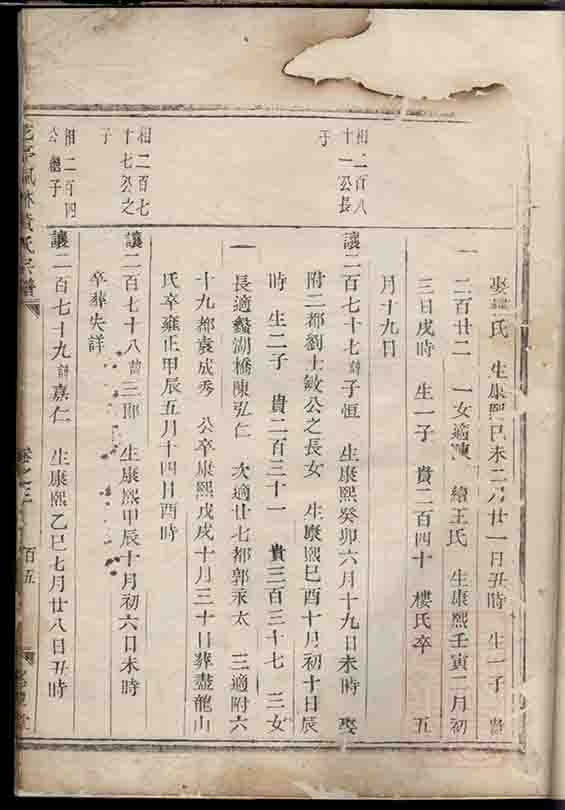 娶樓氏 生康熙己未二月廿一日丑時 生一子 貴
二百廿二 一女適陳 續王氏 生康熙壬寅二月初
三日戌時 生一子 貴二百四十 樓氏卒 五
月十九日
相二百八
十一公長
子
讓二百七十七諱子恒 生康熙癸卯六月十九日未時 娶
附二都劉士敏公之長女 生康熙己酉十月初十日辰
時 生二子 貴二百三十一 貴三百三十七 三女
一 長適蠡湖橋陳弘仁 次適廿七都郭永太 三適附六
十九都袁成秀 公卒康熙戊戌十月三十日葬盡龍山
氏卒雍正甲辰五月十四日酉時
相二百七
十七公之
子
讓二百七十八諱三耶 生康熙甲辰十月初六日未時
卒葬失詳
相二百四
公 子
讓二百七十九諱嘉仁 生康熙乙巳七月廿八日丑時
黃氏宗譜 卷之三 百五